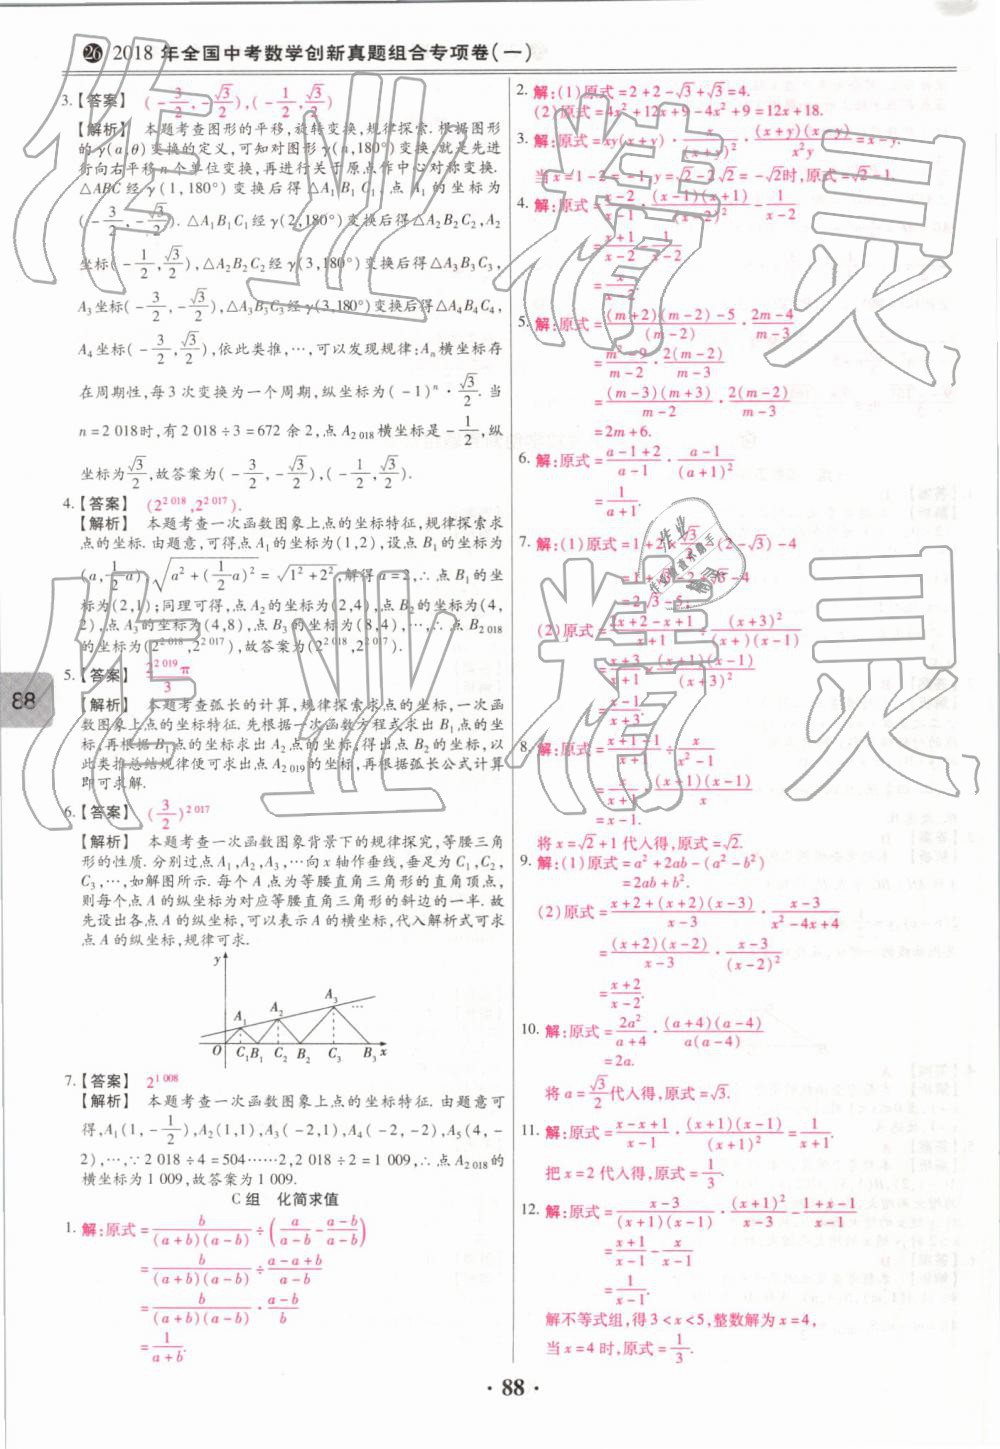 26 2018年全国中考数学创新真题组合专项卷(一)
3.【答案】 (-3/2,-√3/2),(-1/2,√3/2)
【解析】 本题考查图形的平移,旋转变换,规律探索.根据图形
的γ(a,θ)变换的定义,可知对图形γ(n,180°)变换,就是先进
行向右平移n个单位变换,再进行关于原点作中心对称变换.
△ABC经γ(1,180°)变换后得△A₁B₁C₁,点A₁的坐标为
(-3/2,-√3/2).△A₁B₁C₁经γ(2,180°)变换后得△A₂B₂C₂,A₂
坐标(-1/2,√3/2),△A₂B₂C₂经γ(3,180°)变换后得△A₃B₃C₃,
A₃坐标(-3/2,-√3/2),△A₃B₃C₃经γ(3,180°)变换后得△A₄B₄C₄,
A₄坐标(-3/2,√3/2),依此类推,…,可以发现规律:Aₙ横坐标存
在周期性,每3次变换为一个周期,纵坐标为(-1)ⁿ·√3/2.当
n=2 018时,有2 018÷3=672余2,点A₂₀₁₈横坐标是-1/2,纵
坐标为√3/2,故答案为(-3/2,-√3/2),(-1/2,√3/2).
4.【答案】 (2^2 018,2^2 017).
【解析】 本题考查一次函数图象上点的坐标特征,规律探索求
点的坐标.由题意,可得点A₁的坐标为(1,2),设点B₁的坐标为
(a,1/2a),√(a²+(1/2a)²)=√(1²+2²),解得a=2,∴点B₁的坐
标为(2,1);同理可得,点A₂的坐标为(2,4),点B₂的坐标为(4,
2),点A₃的坐标为(4,8),点B₃的坐标为(8,4),…,∴点B₂₀₁₈
的坐标为(2^2 018,2^2 017),故答案为(2^2 018,2^2 017).
5.【答案】 2^2 019π/3
【解析】 本题考查弧长的计算,规律探索求点的坐标,一次函
数图象上点的坐标特征.先根据一次函数方程式求出B₁点的坐
标,再根据B₁点的坐标求出A₂点的坐标,得出点B₂的坐标,以
此类推总结规律便可求出点A₂₀₁₉的坐标,再根据弧长公式计算
即可求解.
6.【答案】 (3/2)^2 017
【解析】 本题考查一次函数图象背景下的规律探究,等腰三角
形的性质.分别过点A₁,A₂,A₃,…向x轴作垂线,垂足为C₁,C₂,
C₃,…,如解图所示.每个A点为等腰直角三角形的直角顶点,
则每个点A的纵坐标为对应等腰直角三角形的斜边的一半.故
先设出各点A的纵坐标,可以表示A的横坐标,代入解析式可求
点A的纵坐标,规律可求.
y
A₁ A₂ A₃ …
O C₁B₁ C₂ B₂ C₃ B₃ x
7.【答案】 2^1 008
【解析】 本题考查一次函数图象上点的坐标特征.由题意可
得,A₁(1,-1/2),A₂(1,1),A₃(-2,1),A₄(-2,-2),A₅(4,-
2),…,∵2 018÷4=504……2,2 018÷2=1 009,∴点A₂₀₁₈的
横坐标为1 009,故答案为1 009.
C组 化简求值
1.解:原式=b/((a+b)(a-b))÷(a/(a-b)-(a-b)/(a-b))
=b/((a+b)(a-b))÷(a-a+b)/(a-b)
=b/((a+b)(a-b))·(a-b)/b
=1/(a+b).
2.解:(1)原式=2+2-√3+√3=4.
(2)原式=4x²+12x+9-4x²+9=12x+18.
3.解:原式=xy(x+y)·x/(x+y)²·(x+y)(x-y)/(x²y)=x-y.
当x=1-2=-1,y=√2-2√2=-√2时,原式=√2-1.
4.解:原式=(x-2)/(x-1)·(x-1)(x+1)/(x-2)²-1/(x-2)
=(x+1)/(x-2)-1/(x-2)
=x/(x-2).
5.解:原式=((m+2)(m-2)-5)/(m-2)·(2m-4)/(m-3)
=(m²-9)/(m-2)·2(m-2)/(m-3)
=(m-3)(m+3)/(m-2)·2(m-2)/(m-3)
=2m+6.
6.解:原式=(a-1+2)/(a-1)·(a-1)/(a+1)²
=1/(a+1).
7.解:(1)原式=1+2×√3/2-(2-√3)-4
=1+√3-2+√3-4
=2√3-5;
(2)原式=(2x+2-x+1)/(x+1)÷(x+3)²/((x+)(x-1))
=(x+3)/(x+1)×(x+1)(x-1)/(x+3)²
=(x-1)/(x+3).
8.解:原式=(x+1-1)/(x+1)÷x/(x²-1)
=x/(x+1)·(x+1)(x-1)/x
=x-1.
将x=√2+1代入得,原式=√2.
9.解:(1)原式=a²+2ab-(a²-b²)
=2ab+b².
(2)原式=(x+2+(x+2)(x-3))/(x-3)·(x-3)/(x²-4x+4)
=(x+2)(x-2)/(x-3)·(x-3)/(x-2)²
=(x+2)/(x-2).
10.解:原式=2a²/(a+4)·(a+4)(a-4)/(a(a-4))
=2a.
将a=√3/2代入得,原式=√3.
11.解:原式=(x-x+1)/(x-1)·(x+1)(x-1)/(x+1)²=1/(x+1).
把x=2代入得,原式=1/3.
12.解:原式=(x-3)/((x+1)(x-1))·(x+1)²/(x-3)-(1+x-1)/(x-1)
=(x+1)/(x-1)-x/(x-1)
=1/(x-1).
解不等式组,得3<x<5,整数解为x=4,
当x=4时,原式=1/3.
88
·88·
作业精灵
作业精灵